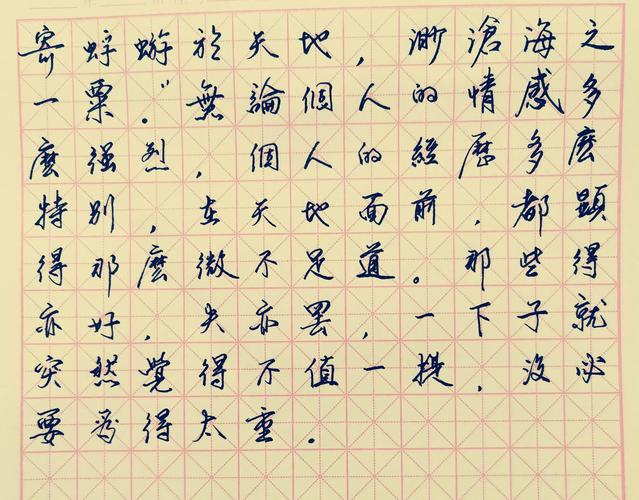 寄蜉蝣於天地，渺滄海之
一粟.”無論個人的情感多
麼强烈，個人的經歷多麽
特别，在天地面前，都顯
得那麼微不足道。那些得
亦好，失亦罢，一下子就
突然覺得不值一提，没必
要看得太重.